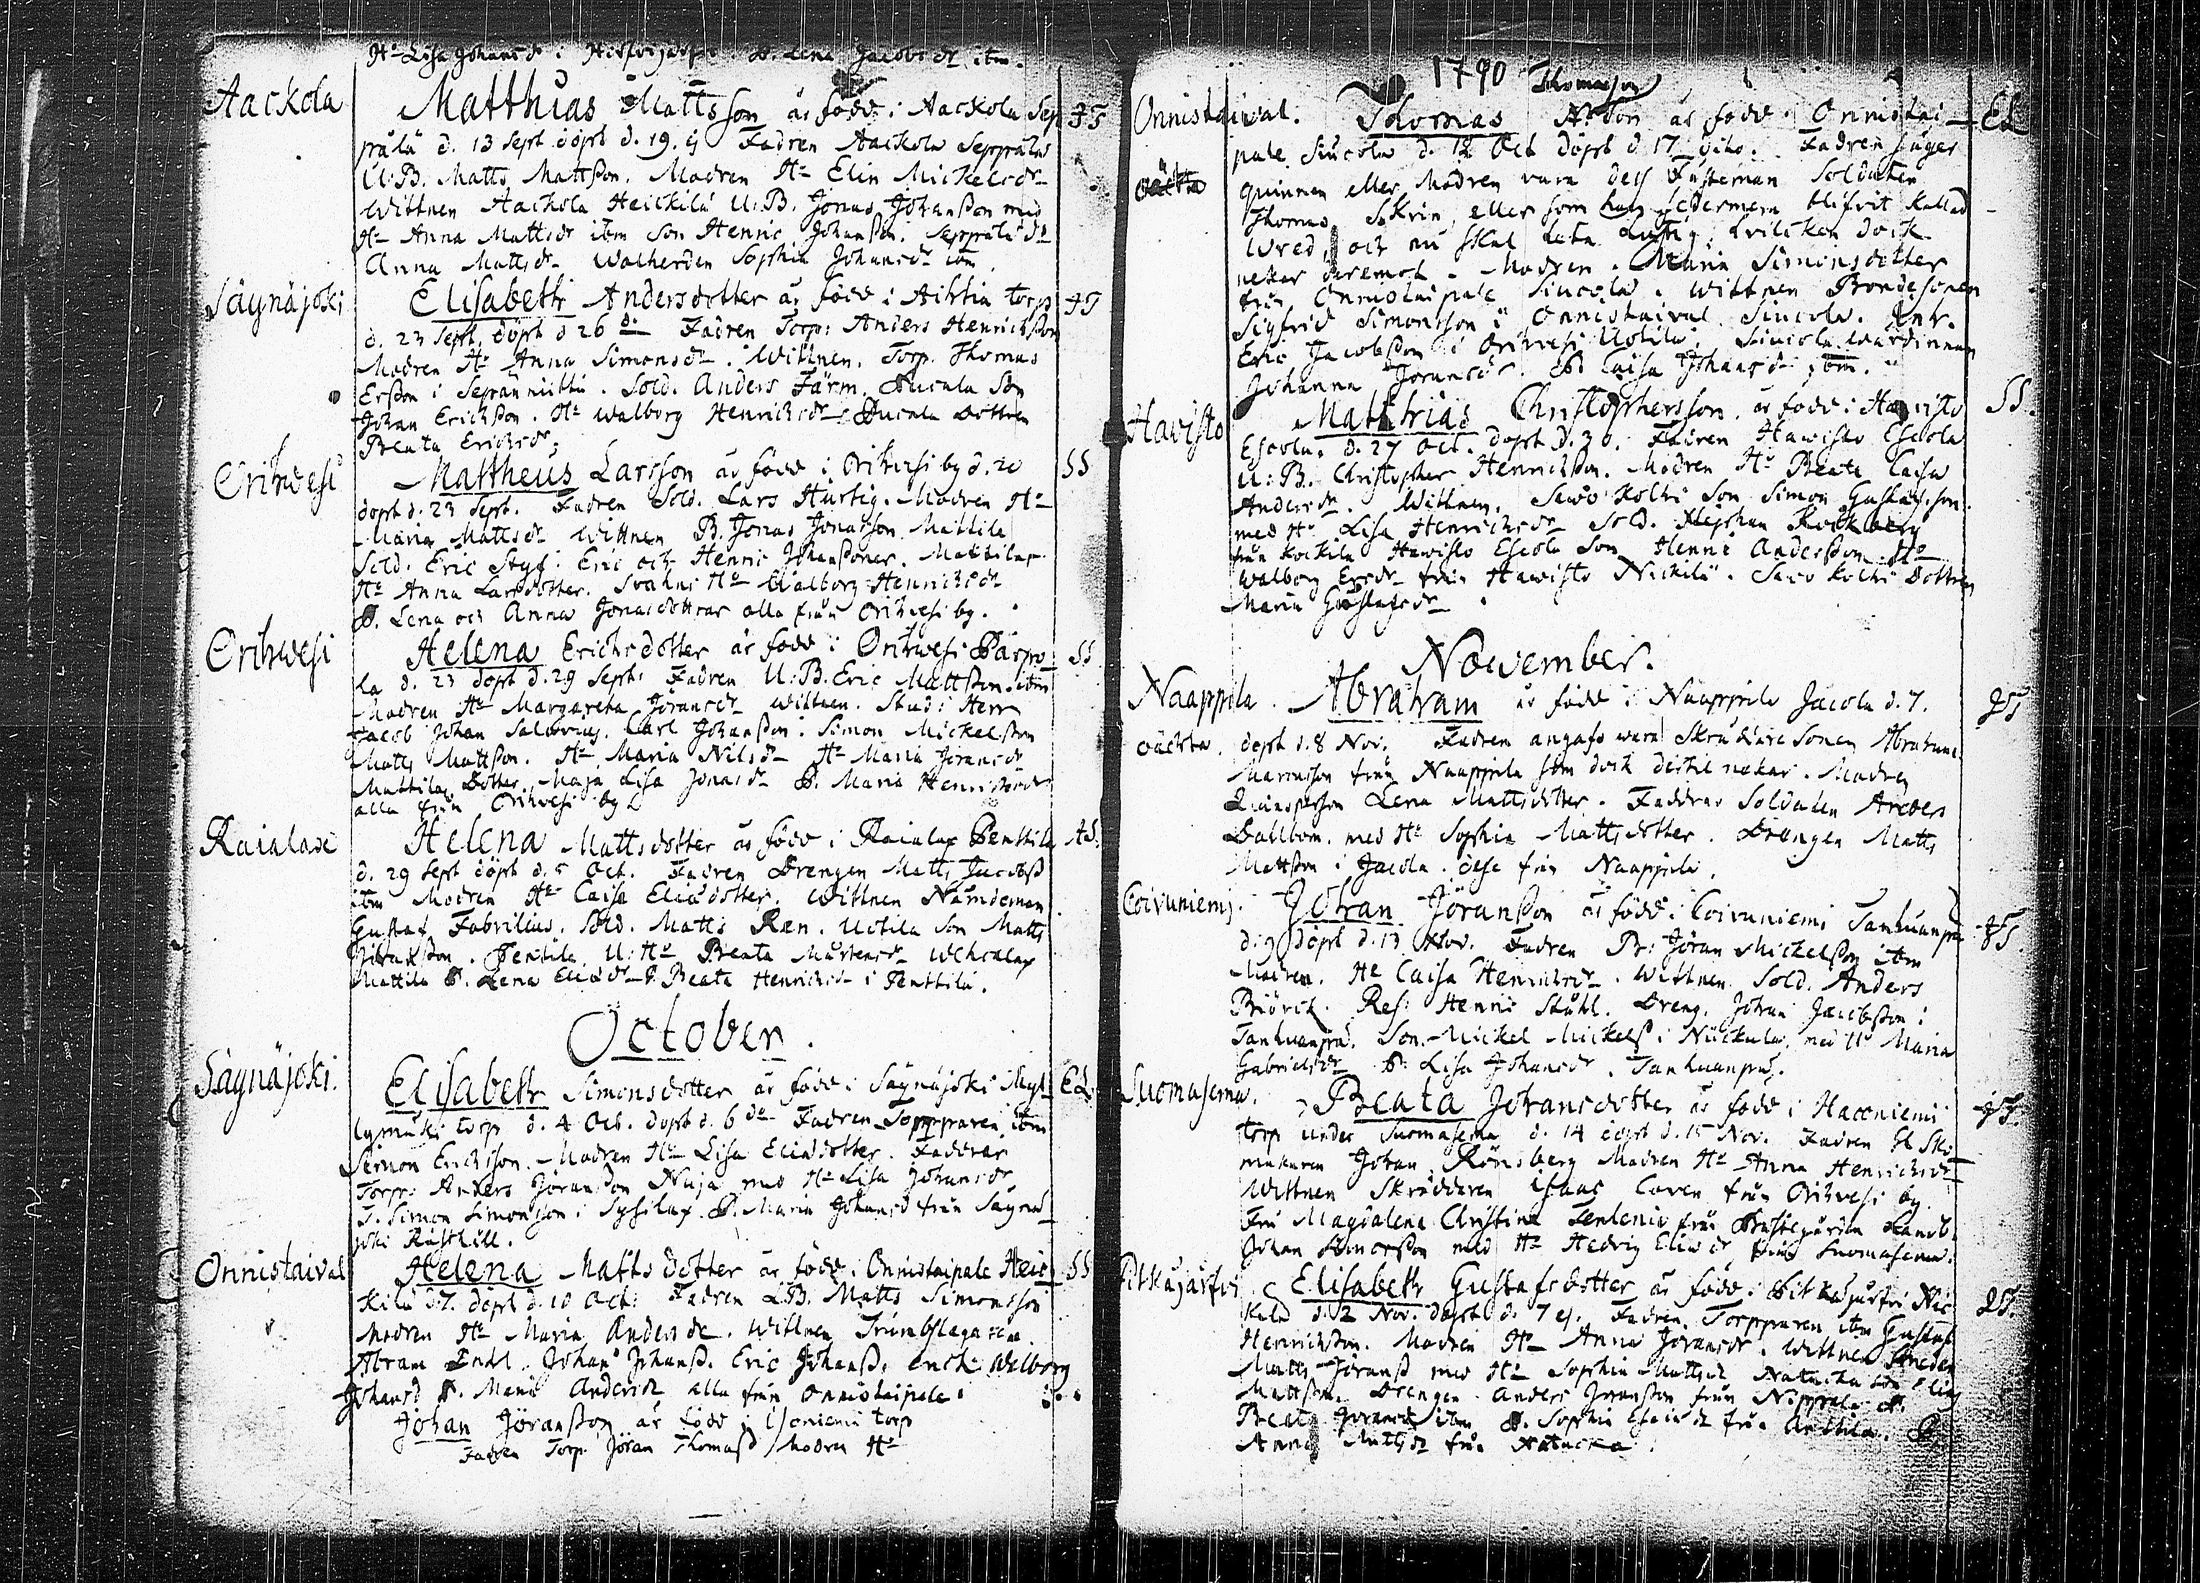 Hu Lisa Johansdr i D. Lena Jacobsdr ibm.
Aackola Matthias Mattsson är född i Aackola Sep JS
pälä d. 13 Sept döpt d. 19. ej Fadren Aackola Seppälas
U:B. Matts Mattsson. Modren Hu Elin Mickelsdr
Wittnen Aackola Heickilä U:B. Jonas Johansson med
Hu Anna Mattsdr ibm Son Henric Johansson. Seppälä Dr
Anna Mattsdr Walherden Sophia Johansdr ibm
Säynäjoki Elisabeth Andersdotter är född i Aihtia torp JS
d. 23 Sept. döpt d 26 do Fadren Torp: Anders Henricsson
Modren Hu Anna Simonsdr. Wittnen. Torp. Thomas
Ersson i Sepänniittu. Sold. Anders Färm. Aucala Son
Johan Ericsson. Hu Walborg Henricsdr Aucala Dottren
Beata Ericsdr.
Orihwesi Mattheus Larsson är född i Orihwesi by d. 20 SS
döpt d. 23 Sept. Fadren Sold. Lars Hurtig. Modren Hu
Maria Mattsdr Wittnen B. Jonas Jonasson Mattila
Sold. Eric Styf. Eric och Henric Johanssöner. Mattilas
Hu Anna Larsdotter. Svahns Hu Walborg Henricsdr
D. Lena och Anna Jonasdöttrar alla från Orihwesi by.
Orihwesi Helena Ericsdotter är född i Orihwesi Parpo SS
la d. 23 döpt d. 29 Sept: Fadren U:B. Eric Mattsson ibm
Modren Hu Margaretha Göransdr Wittnen. Stud: Herr
Jacob Johan Salovius. Carl Johansson. Simon Mickelsson
Matts Mattsson. Hu Maria Nilsdr Hu Maria Göransdr
Mattilas Dotter Maja Lisa Jonasdr D. Maria Henricsdr
alla från Orihwesi by
Raialax Helena Mattsdotter är född i Raialax Penttilä AS.
d. 29 Sept döpt d. 5 Oct. Fadren Drengen Matts Jacobss
ibm Modren Hu Caisa Eliædotter. Wittnen Nämdeman
Gustaf Fabrilius. Sold. Matts Ren. Uotila Son Matts
Penttilä U: Hu Beata Mårtensdr Wehcalax
Mattila D. Lena Eliædr D. Beata Henricsdr i Penttilä.
October.
Säynäjoki. Elisabeth Simonsdotter är född i Säynäjoki Myl EL
lymäki torp d. 4 Oct. döpt d. 6 do Fadren Torpparen ibm
Simon Ericsson. Modren Hu Lisa Eliædotter. Faddrar
Torpr: Anders Göransson Nuja med Hu Lisa Johansdr
T. Simon Simonsson i Sysilax. D. Maria Johansd från Säynä
joki Rusthåll.
Onnistaival Helena Matts dotter är född i Onnistaipale Heic SS
kilä d. 7. döpt d. 10 Oct: Fadren L.B. Matts Simonsson
Modren Hu Maria Andersdr. Wittnen Trumslagaren
Abram Johan Johanss. Eric Johanss. enck: Walborg
Johansd D. Maria Andersdr alla från Onnistaipale.
Johan Göransson är född i torp
Fadren Torp. Jöran Thomass Modren Hu
1790 Thomasson
Onnistaival. Thomas är född i Onnistai EL
pale Siucola d. 12 Oct döpt d 17 Fadren säger
oächta quinnan eller Modren vara dess Fästeman Soldaten
Thomas eller som han sedermera blifvit kallad
Wred, och nu skal heta Lustig, hvilcken dock
nekar deremot. Modren. Maria Simonsdotter
från Onnistaipale Siucola. Wittnen Bondesonen
Sigfrid Simonsson i Onnistaival Siucola. Inh.
Eric Jacobsson i Orihvesi Uotila. Siucola wärdinnan
Johanna Göransdr. D Caisa Johansdr ibm.
Hawisto Matthias Christophersson är född i Hawisto SS.
Escola. d. 27 Oct. döpt d. 30. Fadren Hawisto Escola
U:B. Christopher Henricsson. Modren Hu Beata Caisa
Andersdr. Wittnen. Sawo Kolhi Son Simon Gustafsson
med Hu Lisa Henricsdr Sold.
från Kockila Hawisto Escola Son Henric Andersson. Hu
Walborg Ersdr från Hawisto Nickilä. Sawo Kolhi Dottren
Maria Gustafsdr
November.
Naappila. Abraham är född i Naappila Jacola d. 7. JS
oächta. döpt d. 8 Nov. Fadren angafs wara Skräddare Sonen Abraham
från Naappila som dock dertil nekar. Modren
Quinsperson Lena Mattsdotter. Faddrar Soldaten
Dallbom. med Hu Sophia Mattsdotter. Drengen Matts
Mattsson i Jacola. desse från Naappila.
Coivuniemi. Johan Jöransson är född i Coivuniemi Tanhuanpä JS.
d. 9 döpt d. 13 Nov. Fadren B: Jöran Mickelsson ibm
Modren. Hu Caisa Henricsdr. Wittnen Sold. Anders
Biörck. Res: Henric Ståhl. Dreng. Johan Jacobsson i
Tanhuanpä. Son. Mickel Mickelss i Nickula, med Hu Maria
Gabrielsdr D. Lisa Johansdr. Tanhuanpä.
Suomasema. Beata Johansdotter är född i Haconiemi JS.
torp under Suomasema d. 14 döpt d. 15 Nov. Fadren Gl Sko
makaren Johan Rönsberg Modren Hu Anna Henricsdr
Wittnen Skrädderen Isaac från Orihvesi by
Fru Magdalena Christina från Prästegården Landb.
Johan Simonsson med Hu Hedvig Eliædr från Suomasema.
Pitkäjärfvi Elisabeth Gustafsdotter är född i Pitkäjärfvi Nic JS.
kala d. 2 Nov. döpt d. 7 ej. Fadren. Torpparen ibm Gustaf
Henricsson. Modren Hu Anna Göransdr. Wittnen
Matts Göranss med Hu Sophia Mattsdr Son Elias
Mattsson. Drengen Anders Göransson från D.
Beata Göransdr ibm D. Sophia från Anttila. D.
Anna Mattsdr från